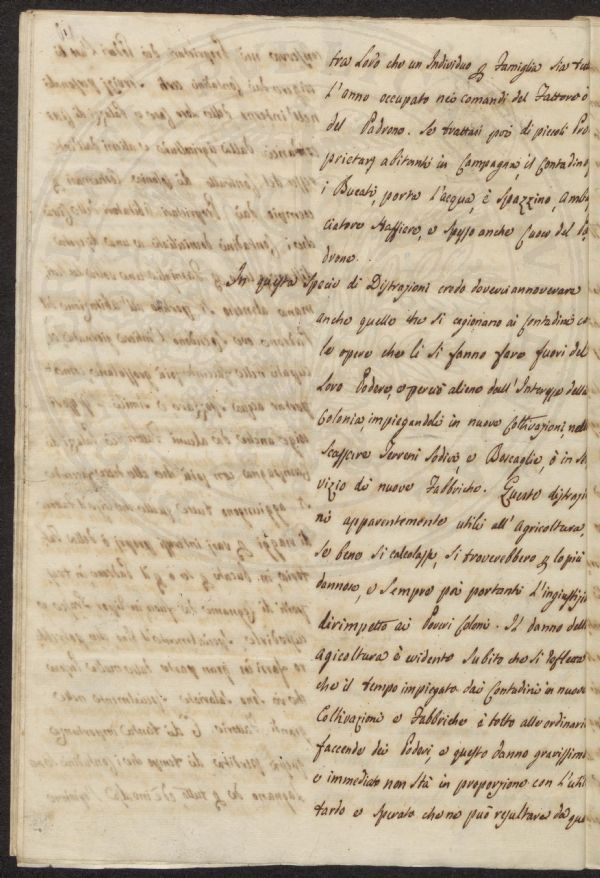 tra Loro che un Individuo p Famiglia sia tutto
L'anno occupato nei comandi del Fattore o
del Padrone. Se trattasi poi di piccoli Pro
prietarj abitanti in Campagna, il Contadino
i Bucati, porta l'acqua, è Spazzino, Amba
sciatore Staffiere, e spesso anche Cuoco del Pa
drone.
In questa Specie di Distrazioni credo dovervi annoverare
anche quelle che si cagionano ai Contadini co
le opere che li si fanno fare fuori del
Loro Podere, e perciò alieno dall'Interesse della
Colonia, impiegandoli in nuove Coltivazioni, nello
Scassare Terreni Sodivi, e Boscaglie, o in se
vizio di nuove Fabbriche. Queste distrazio
ni apparentemente utili all'Agricoltura,
se bene si calcolasse, si troverebbero p lo più
dannose, e sempre poi portanti L'ingiustizia
dirimpetto ai Poveri Coloni. Il danno dell
Agricoltura è evidente Subito che si rifletta
che il tempo impiegato dai Contadini in nuove
Coltivazioni e Fabbriche è tolto alle ordinarie
faccende dei Poderi, e questo danno gravissimo
e immediato non stà in proporzione con L'utile
tardo e sperato che ne può resultare da que